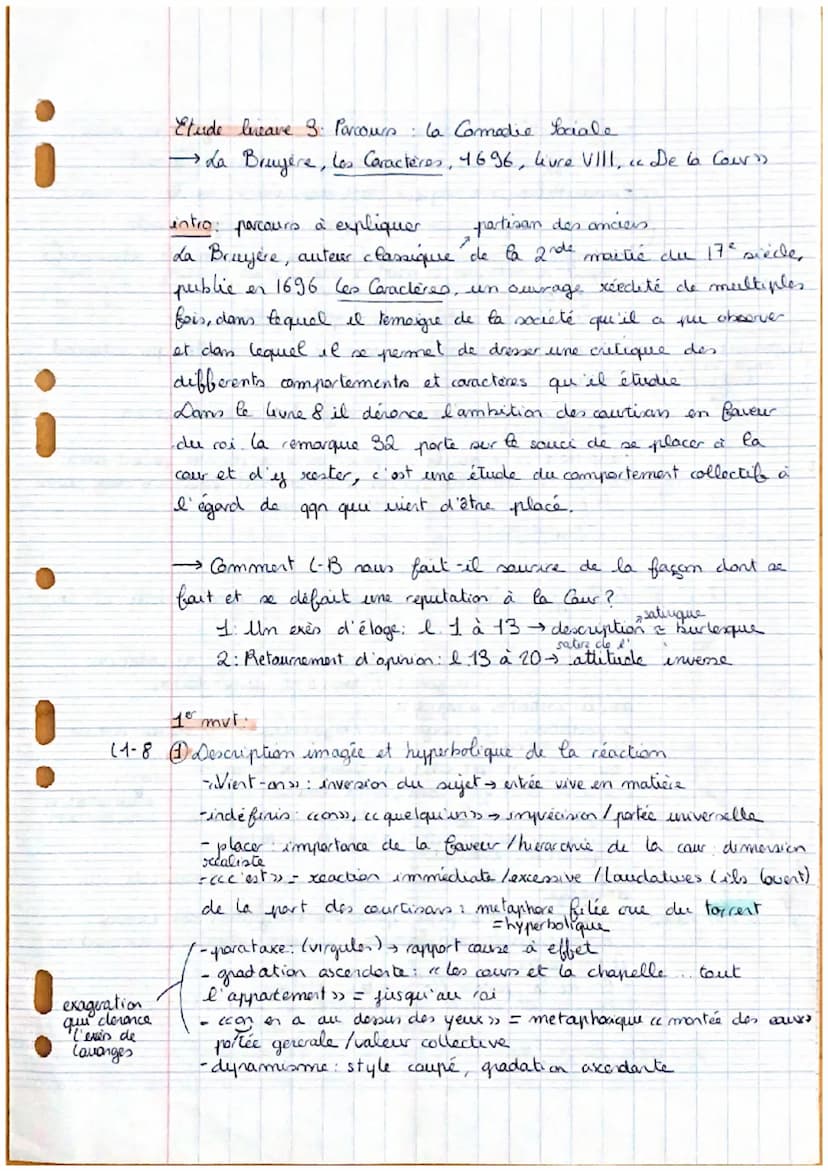 Etude lineaire 3: Parcours : la Comedie Sociale
→ La Bruyère, Les Caractères, 1696, livre VIII, « De la Cour »
intro: parcours à expliquer
partisan des anciens
La Bruyère, auteur classique de la 2nde moitié du 17e siècle,
publie en 1696 Les Caractères, un ouvrage réedité de multiples
fois, dans lequel il temoigne de la société qu'il a pu observer
et dans lequel il se permet de dresser une critique des
differents comportements et caracteres qu'il étudie
Dans le livre 8 il dénonce l'ambition des courtisans en faveur
du roi. la remarque 32 porte sur le souci de se placer à la
cour et d'y rester, c'est une étude du comportement collectif à
l'égard de qqn qui vient d'être placé.
→ Comment L-B nous fait-il sourire de la façon dont se
fait et se défait une reputation à la Cour ?
satirique
1: Un exès d'éloge: l. 1 à 13 → description = burlesque
satire de l'
2: Retournement d'opinion: l.13 à 20 → attitude inverse
1er mvt:
L1-8 ① Description imagée et hyperbolique de la réaction
- « Vient-on » : inversion du sujet → entrée vive en matière
- indéfinis : « on », « quelqu'un » → imprécision / portée universelle
- placer : importance de la faveur / hierarchie de la cour dimension
réaliste
- « c'est » = reaction immédiate / excessive / laudatives (ils louent)
de la part des courtisans : metaphore filée crue du torrent
= hyperbolique
- parataxe: (virgules) → rapport cause à effet
- gradation ascendante: « les cours et la chapelle .. tout
l'appartement » = jusqu'au roi
- « on en a au dessus des yeux » = metaphorique « montée des eaux »
portée generale / valeur collective
- dynamisme : style coupé, gradation ascendante
exageration
qui denonce
l'exès de
louanges